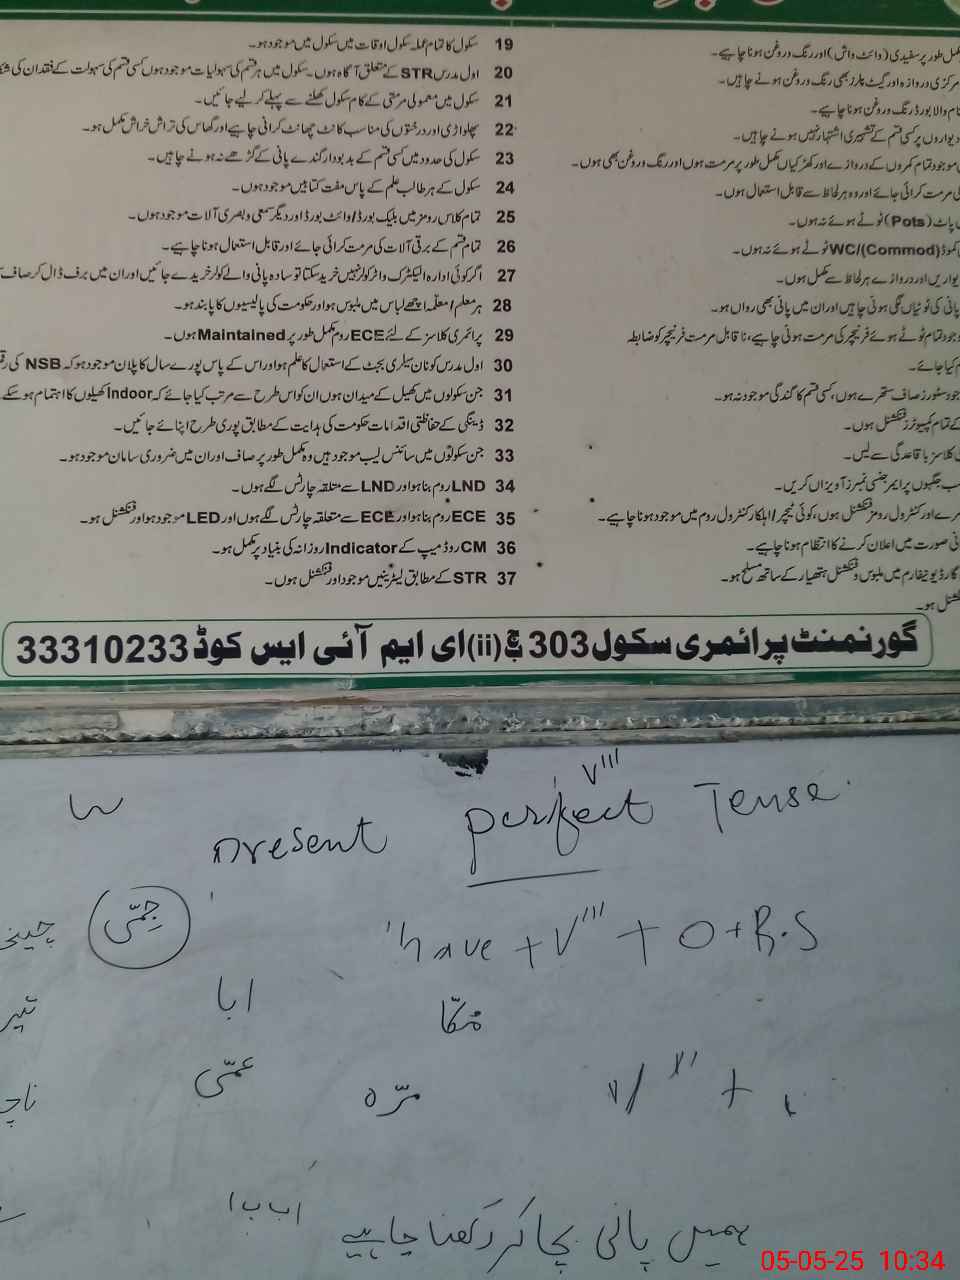 19 سکول کا تمام عملہ سکول اوقات میں سکول میں موجود ہو۔
20 اول مدرس STR کے متعلق آگاہ ہوں۔ سکول میں ہر قسم کی سہولیات موجود ہوں کسی قسم کی سہولت کے فقدان کی
21 سکول میں معمولی مرمتی کے کام سکول کھلنے سے پہلے کر لیے جائیں۔
22 پھلواڑی اور درختوں کی مناسب کانٹ چھانٹ کرائی جائے اور گھاس کی تراش خراش مکمل ہو۔
23 سکول کی حدود میں کسی قسم کے بدبودار گندے پانی کے گڑھے نہ ہونے چاہیں۔
24 سکول کے ہر طالب علم کے پاس مفت کتابیں موجود ہوں۔
25 تمام کلاس رومز میں بلیک بورڈ/وائٹ بورڈ اور دیگر سمعی و بصری آلات موجود ہوں۔
26 تمام قسم کے برقی آلات کی مرمت کرائی جائے اور قابل استعمال ہونا چاہیے۔
27 اگر کوئی ادارہ الیکٹرک واٹر کولر نہیں خرید سکتا تو سادہ پانی والے کولر خریدے جائیں اور ان میں برف ڈال کر صاف
28 ہر معلم/معلمہ اچھے لباس میں ملبوس ہو اور حکومت کی پالیسیوں کا پابند ہو۔
29 پرائمری کلاسز کے لئے ECE روم مکمل طور پر Maintained ہوں۔
30 اول مدرس کو نان سیلری بجٹ کے استعمال کا علم ہو اور اس کے پاس پورے سال کا پلان موجود ہو کہ NSB کی
31 جن سکولوں میں کھیل کے میدان ہوں ان کو اس طرح سے مرتب کیا جائے کہ Indoor کھیلوں کا اہتمام ہو سکے
32 ڈینگی کے حفاظتی اقدامات حکومت کی ہدایت کے مطابق پوری طرح اپنائے جائیں۔
33 جن سکولوں میں سائنس لیب موجود ہیں وہ مکمل طور پر صاف اور ان میں ضروری سامان موجود ہو۔
34 LND روم بنا ہو اور LND سے متعلقہ چارٹس لگے ہوں۔
35 ECE روم بنا ہو اور ECE سے متعلقہ چارٹس لگے ہوں اور LED موجود ہو اور فنکشنل ہو۔
36 CM روڈ میپ کے Indicator روزانہ کی بنیاد پر مکمل ہو۔
37 STR کے مطابق لیٹرینیں موجود اور فنکشنل ہوں۔
مکمل طور پر سفیدی (وائٹ واش) اور رنگ و روغن ہونا چاہیے۔
مرکزی دروازہ اور گیٹ پلرز بھی رنگ و روغن ہونے چاہیں۔
نام والا بورڈ رنگ و روغن ہونا چاہیے۔
دیواروں پر کسی قسم کے تشہیری اشتہار نہیں ہونے چاہیں۔
موجود تمام کمروں کے دروازے اور کھڑکیاں مکمل طور پر مرمت ہوں اور رنگ و روغن بھی ہوں۔
کی مرمت کرائی جائے اور وہ ہر لحاظ سے قابل استعمال ہوں۔
پاٹ (Pots) ٹوٹے ہوئے نہ ہوں۔
کموڈ WC/(Commod) ٹوٹے ہوئے نہ ہوں۔
دیواریں اور دروازے ہر لحاظ سے مکمل ہوں۔
پانی کی ٹوٹیاں لگی ہونی چاہیں اور ان میں پانی بھی رواں ہو۔
موجود تمام ٹوٹے ہوئے فرنیچر کی مرمت ہونی چاہیے، ناقابل مرمت فرنیچر کو ضابطہ
کیا جائے۔
موجود سٹورز صاف ستھرے ہوں، کسی قسم کا گندگی موجود نہ ہو۔
کے تمام کمپیوٹرز فنکشنل ہوں۔
کی کلاسز باقاعدگی سے لیں۔
جگہوں پر ایمرجنسی نمبرز آویزاں کریں۔
کنٹرول رومز فنکشنل ہوں، کوئی ٹیچر/اہلکار کنٹرول روم میں موجود ہونا چاہیے۔
صورت میں اعلان کرنے کا انتظام ہونا چاہیے۔
گارڈ یونیفارم میں ملبوس و فنکشنل ہتھیار کے ساتھ مسلح ہو۔
ہو۔
گورنمنٹ پرائمری سکول 303 گ ب (ii) ای ایم آئی ایس کوڈ 33310233
V'''
present perfect Tense.
have + V''' + O + R.S
جِمّی
ابا
مُکّا
عمّی
مرّہ
V''' +
ا ب ب ا
ہمیں پانی بچا کر رکھنا چاہیے
05-05-25 10:34